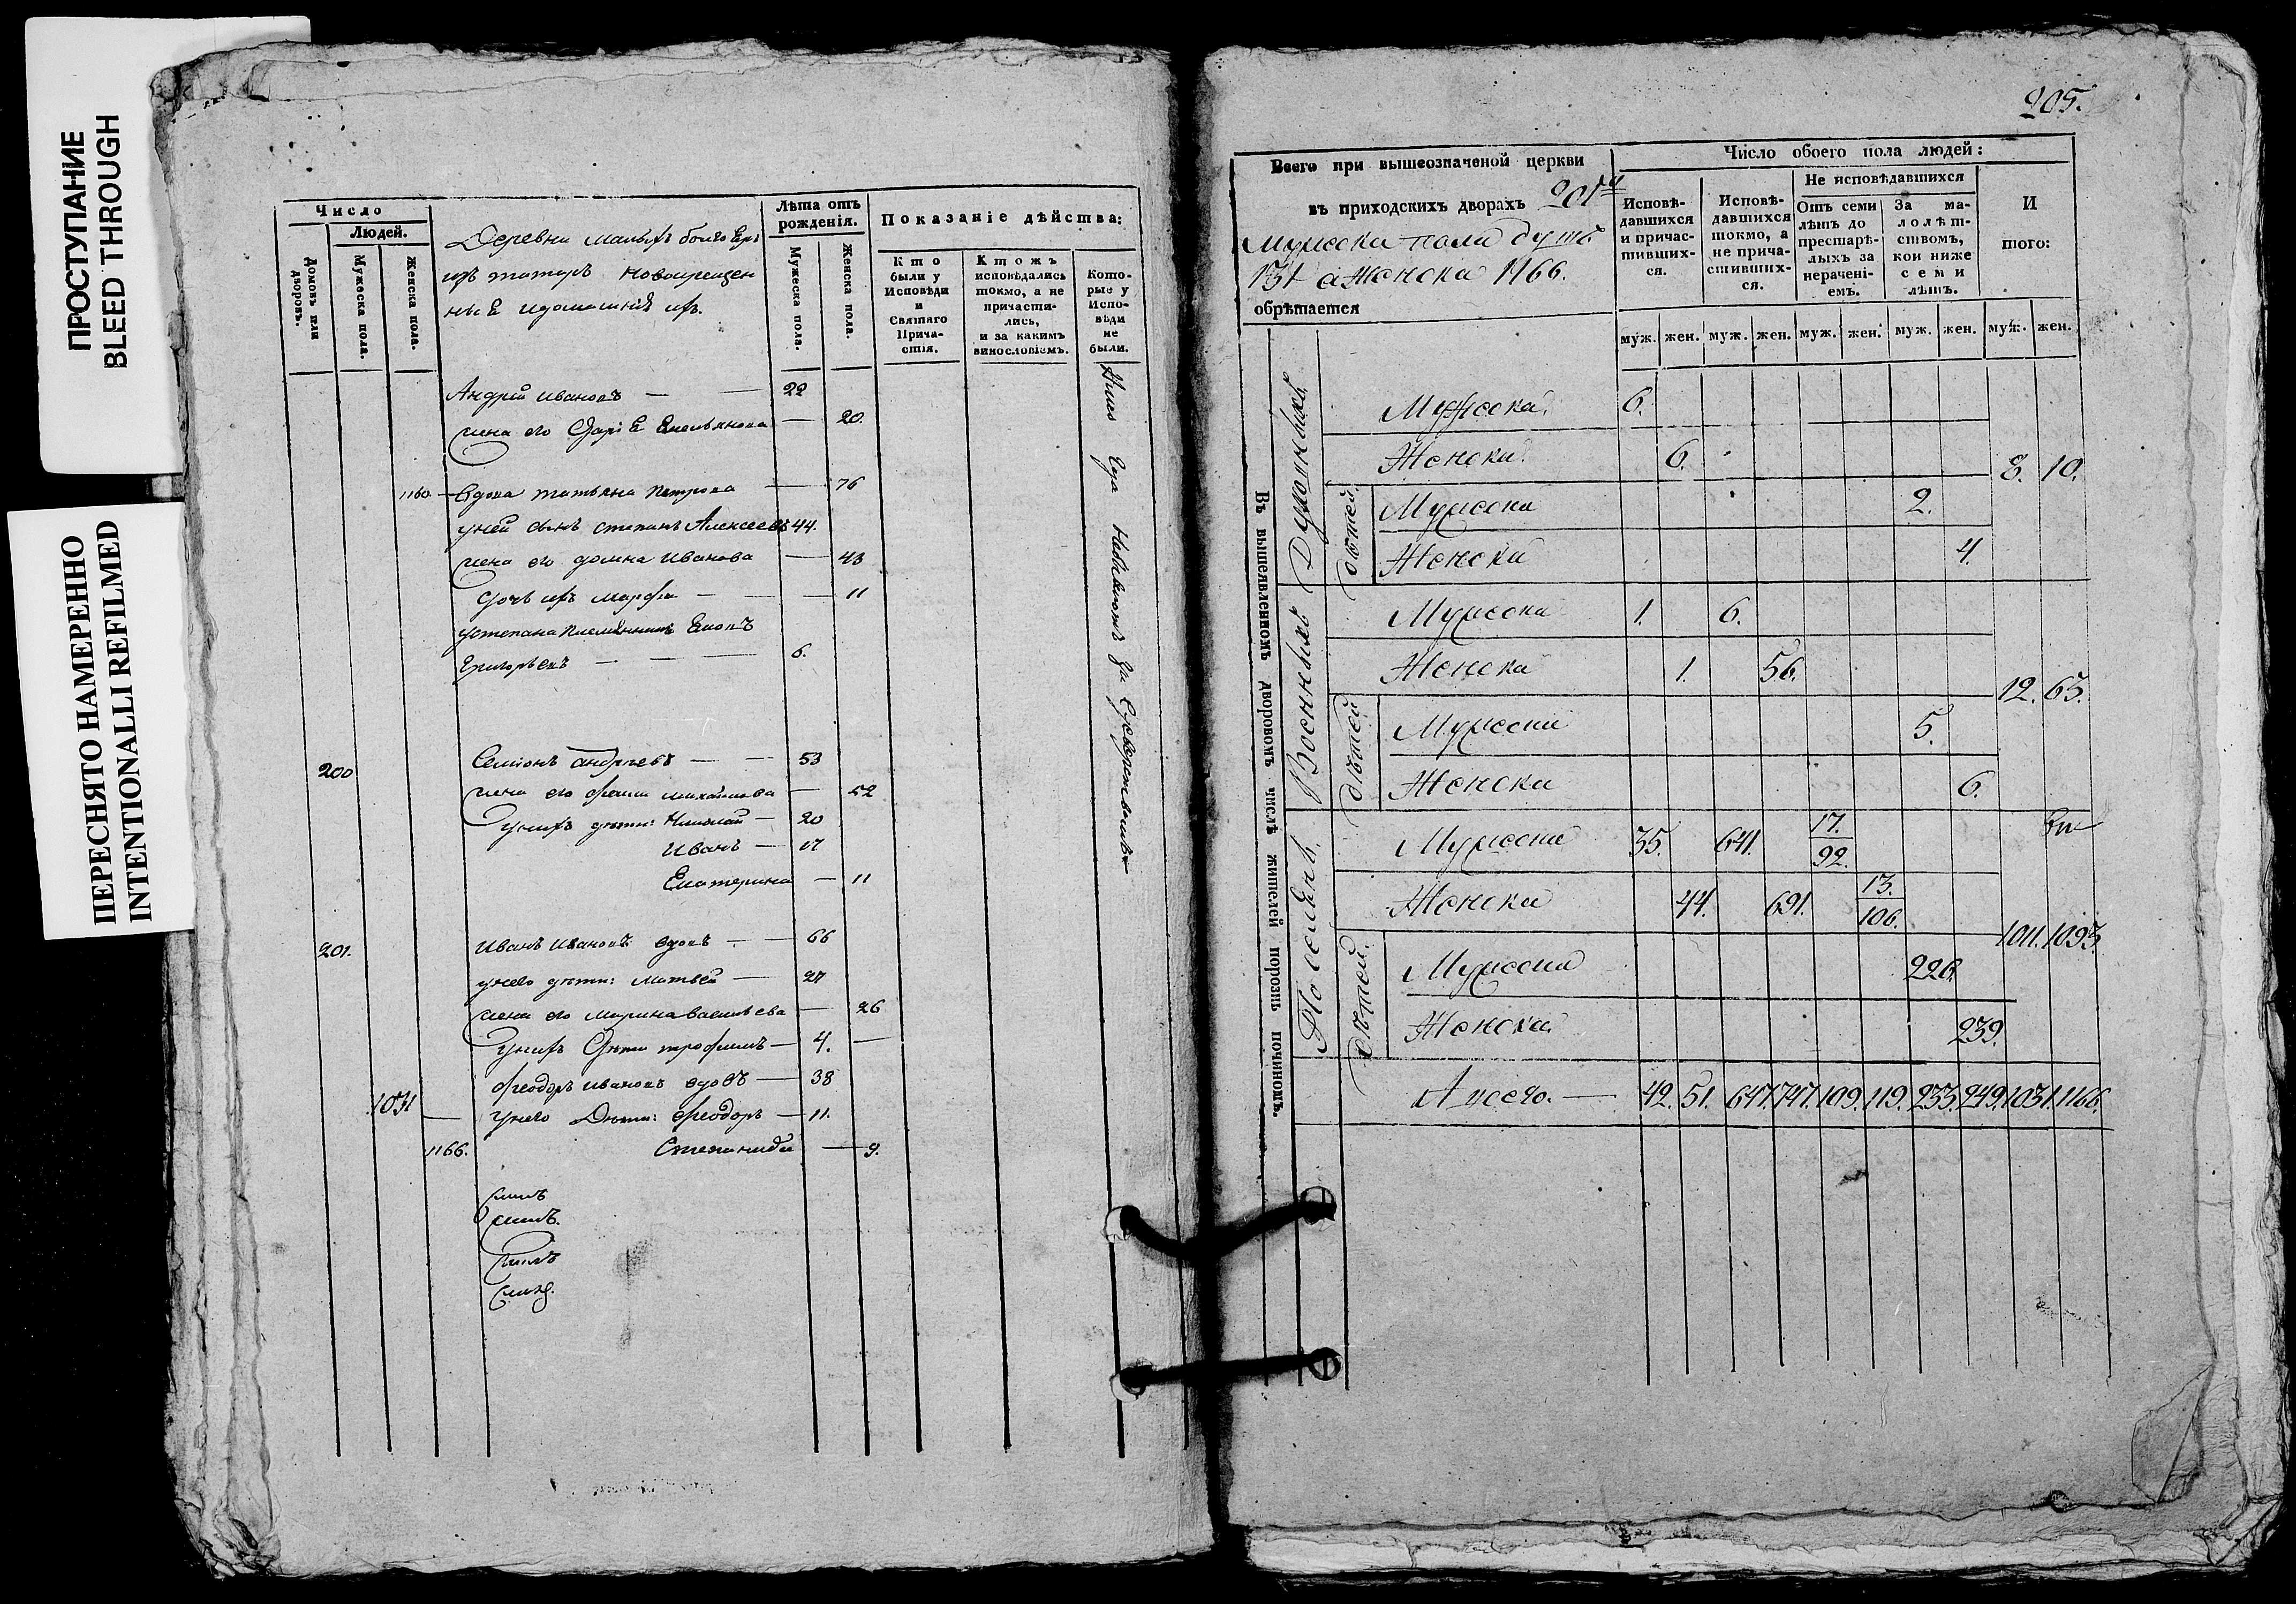 ПРОСТУПАНИЕ
BLEED THROUGH
ПЕРЕСНЯТО НАМЕРЕННО
INTENTIONALLI REFILMED
Число
Людей.
Домовъ или дворовъ.
Мужеска пола.
Женска пола.
Деревни
изъ татаръ новокрещен
Лѣта отъ рожденія.
Мужеска пола.
Женска пола.
Показаніе дѣйства:
Кто были у Исповѣди и Святаго Причастія.
Ктожъ исповѣдались токмо, а не причастились, и за какимъ винословіемъ.
Которые у Исповѣди не были.
Андрей Ивановъ — 22
жена его Дарія Емельянова — 20.
1160. — вдова татьяна петрова — 76
уней сынъ степанъ Алексеевъ 44.
жена его домна Иванова — 43
дочь ихъ марфа — 11
устепана племянникъ
Григорьевъ — 6.
200 Семіонъ андреевъ — 53
жена его михайлова — 52
унихъ дѣти: Николай — 20
Иванъ — 17
Екатерина — 11
201. Иванъ Ивановъ вдовъ — 66
унего дѣти: матвей — 27
жена его марина васильева — 26
унихъ дѣти трофимъ — 4. —
феодоръ ивановъ вдовъ — 38
1031 — унего Дѣти: феодоръ — 11.
1166. Степанида — 9.
205.
Всего при вышеозначеной церкви
въ приходскихъ дворахъ 201
Мужеска пола душъ
1031 а Женска 1166.
обрѣтается
Число обоего пола людей:
Исповѣдавшихся и причастившихся.
Исповѣдавшихся токмо, а не причастившихся.
Не исповѣдавшихся
Отъ семи лѣтъ до престарѣлыхъ за нераченіемъ.
За малолѣтствомъ, кои ниже семи лѣтъ.
И того:
муж. жен. муж. жен. муж. жен. муж. жен. муж. жен.
Въ вышеявленномъ дворовомъ числѣ жителей порознь по чиномъ.
Духовныхъ
Мужеска. 6.
Женска. 6.
8. 10.
дѣтей
Мужеска 2.
Женска 4.
Военныхъ
Мужеска 1. 6.
Женска 1. 56.
12. 63.
дѣтей
Мужеска 5.
Женска 6.
Поселянъ.
Мужеска 35. 641. 17. 92.
Женска 44. 691. 13. 106.
1011. 1093
дѣтей.
Мужеска 226.
Женска 239.
А всего. — 42. 51. 647. 747. 109. 119. 233. 249. 1031. 1166.